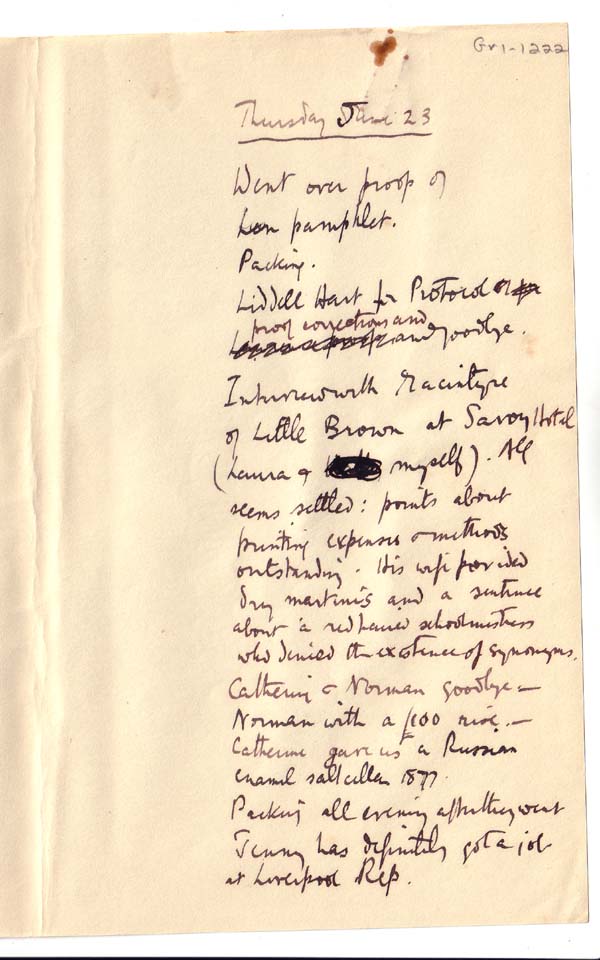 Gr1-1222
Thursday June 23
Went over proof of
Lon pamphlet.
Packing.
Liddell Hart for Protocol
proof corrections and
and goodbye.
Interview with Macintyre
of Little Brown at Savoy Hotel
(Laura & myself). All
seems settled: points about
printing expenses & methods
outstanding. His wife provided
dry martinis and a sentence
about a redhaired schoolmistress
who denied the existence of synonyms.
Catherine & Norman goodbye –
Norman with a £100 rise. –
Catherine gave us a Russian
enamel saltcellar 1877.
Packing all evening after they went
Jenny has definitely got a job
at Liverpool Rep.